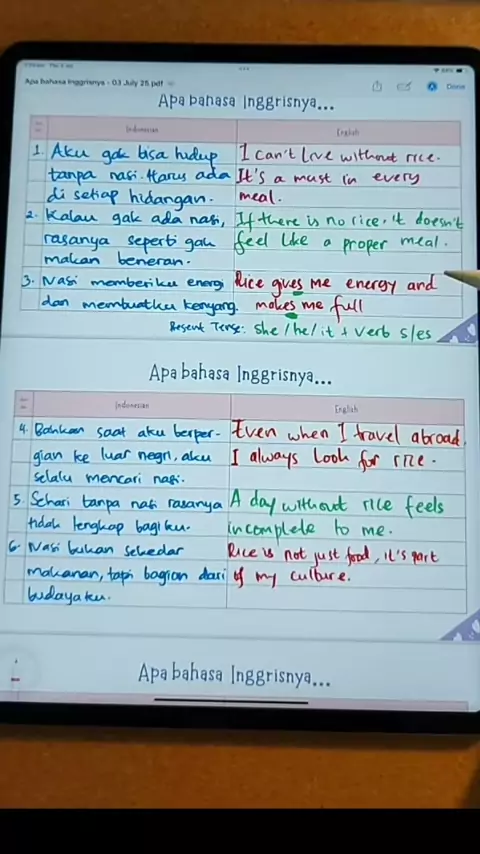 Apa bahasa Inggrisnya - 03 July 25.pdf
Done
Apa bahasa Inggrisnya...
Indonesian English
1. Aku gak bisa hidup I can't live without rice.
tanpa nasi. Harus ada It's a must in every
di setiap hidangan. meal.
2. Kalau gak ada nasi, If there is no rice, it doesn't
rasanya seperti gak feel like a proper meal.
makan beneran.
3. Nasi memberiku energi Rice gives me energy and
dan membuatku kenyang. makes me full
Present Tense: she/he/it + verb s/es
Apa bahasa Inggrisnya...
Indonesian English
4. Bahkan saat aku berper- Even when I travel abroad,
gian ke luar negri, aku I always look for rice.
selalu mencari nasi.
5. Sehari tanpa nasi rasanya A day without rice feels
tidak lengkap bagiku. incomplete to me.
6. Nasi bukan sekedar Rice is not just food, it's part
makanan, tapi bagian dari of my culture.
budayaku.
Apa bahasa Inggrisnya...